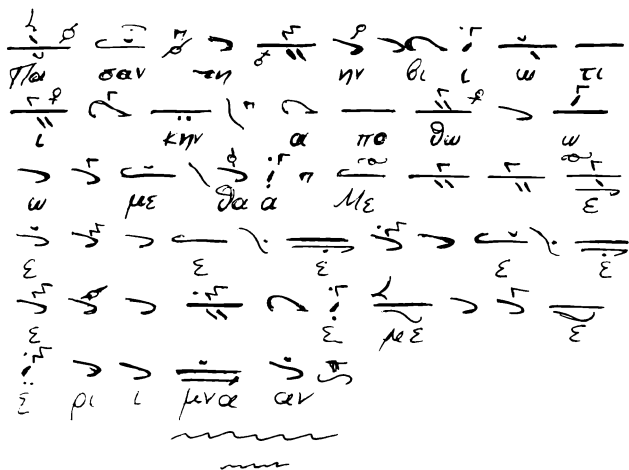 Πα σαν τη ην βι ι ω τι
ι κην α πο θω ω
ω με θα α Με ε
ε ε ε ε ε
ε ε με ε
ε ρι ι μνα αν